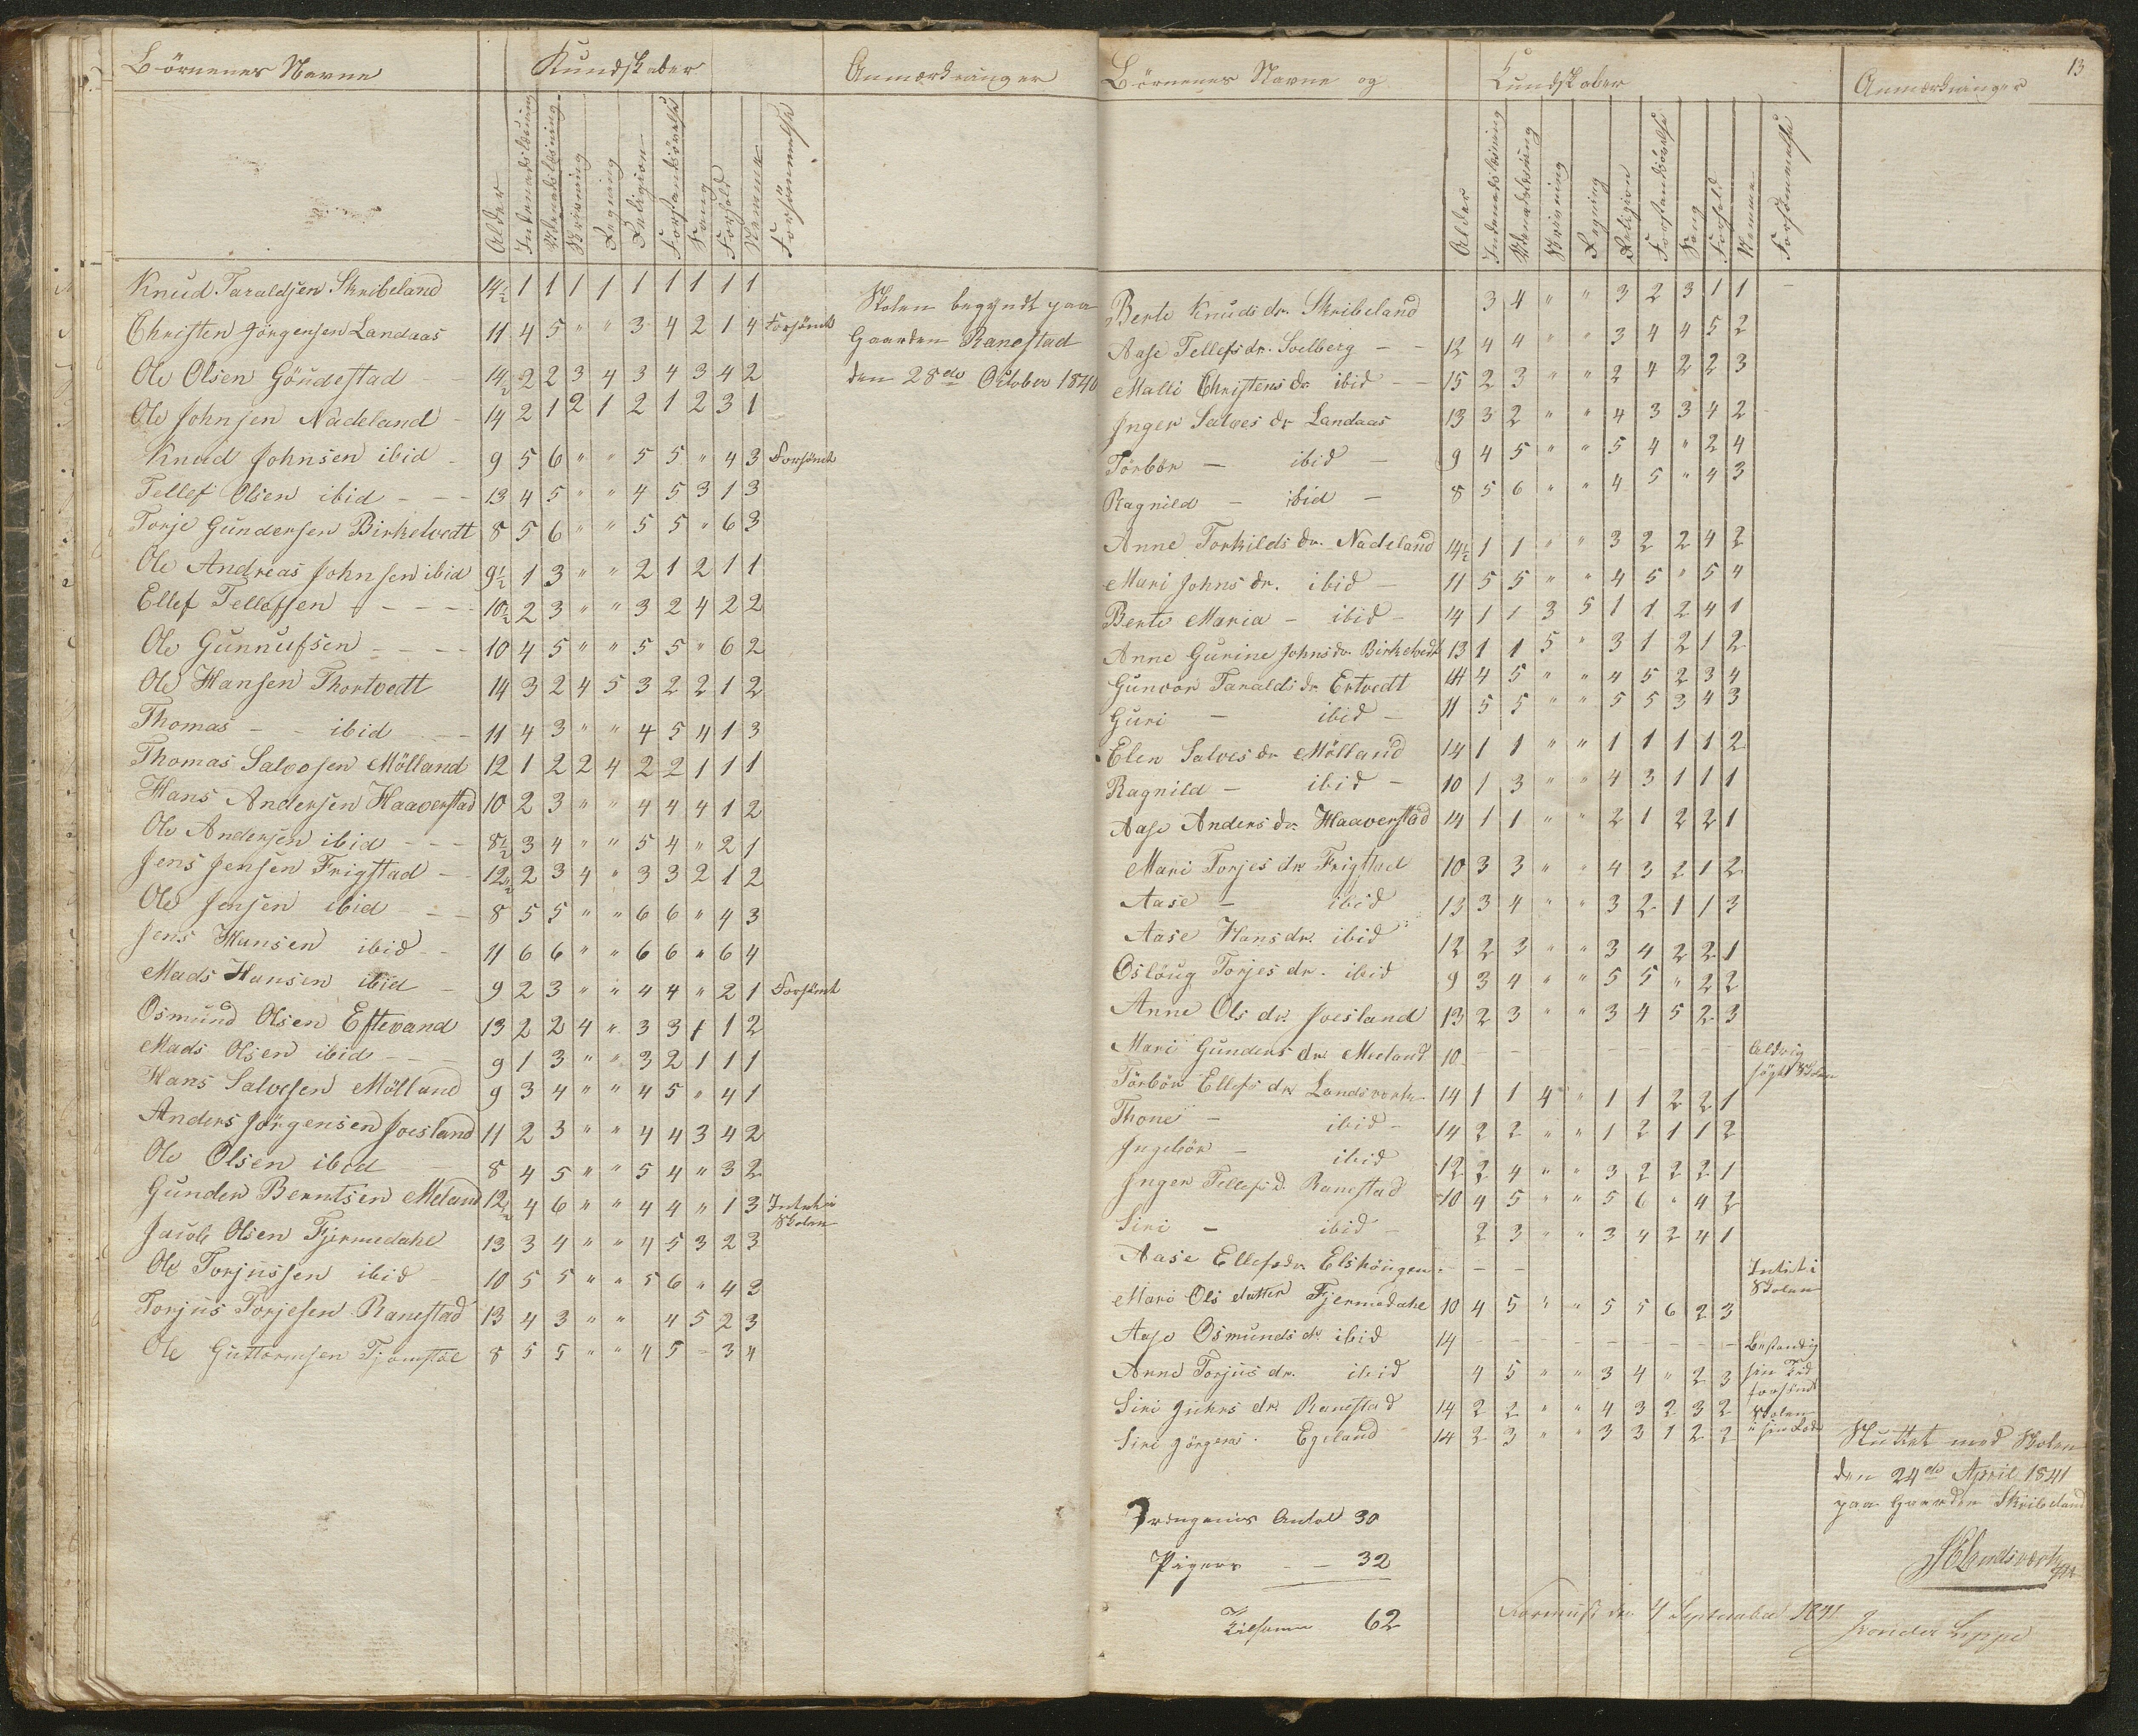 Børnenes Navne Kundskaber Anmærkninger
Alder Indenadslæsning Udenadslæsning Skrivning Regning Religion Forstandsøvelse Sang Forhold Nemme Forsømmelse
Knud Taraldsen Skribeland 14½ 1 1 1 1 1 1 1 1 1
Christen Jörgensen Landaas 11 4 5 " " 3 4 2 1 4 Forsömt
Ole Olsen Göudestad - 14½ 2 2 3 4 3 4 3 4 2
Ole Johnsen Nädeland - 14 2 1 2 1 2 1 2 3 1
Knud Johnsen ibid - 9 5 6 " " 5 5 " 4 3 Forsömt
Tellef Olsen ibid - - - 13 4 5 " " 4 5 3 1 3
Torje Gundersen Birketvedt 8 5 6 " " 5 5 " 6 3
Ole Andreas Johnsen ibid 9½ 1 3 " " 2 1 2 1 1
Ellef Tellefsen - - - - 10½ 2 3 " " 3 2 4 2 2
Ole Gunnufsen - - - - 10 4 5 " " 5 5 " 6 2
Ole Hansen Thortvedt 14 3 2 4 5 3 2 2 1 2
Thomas - - ibid - - 11 4 3 " " 4 5 4 1 3
Thomas Salvesen Mölland 12 1 2 2 4 2 2 1 1 1
Hans Andersen Haaverstad 10 2 3 " " 4 4 4 1 2
Ole Andersen ibid - - - 8½ 3 4 " " 5 4 " 2 1
Jens Jensen Frigstad - - 12½ 2 3 4 " 3 3 2 1 2
Ole Jensen ibid - - - 8 5 5 " " 6 6 " 4 3
Jens Hansen ibid - - 11 6 6 " " 6 6 " 6 4
Mads Hansen ibid - 9 2 3 " " 4 4 " 2 1 Forsömt
Osmund Olsen Eftevand 13 2 2 4 " 3 3 1 1 2
Mads Olsen ibid - - 9 1 3 " " 3 2 1 1 1
Hans Salvesen Mölland 9 3 4 " " 4 5 " 4 1
Anders Jörgensen Joesland 11 2 3 " " 4 4 3 4 2
Ole Olsen ibid - - 8 4 5 " " 5 4 " 3 2
Gunder Berntsen Meland 12½ 4 6 " " 4 4 " 1 3 Intet i
Skolen
Jacob Olsen Fjermedahl 13 3 4 " " 4 5 3 2 3
Ole Torjussen ibid - 10 5 5 " " 5 6 " 4 3
Torjus Torjesen Ranestad 13 4 3 " " 4 5 2 3
Ole Guttormsen Tjomstøl 8 5 5 " " 4 5 - 3 4
Skolen begyndt paa
Gaarden Ranestad
den 28de Oktober 1840
13
Børnenes Navne og Kundskaber Anmærkninger
Alder Indenadslæsning Udenadslæsning Skrivning Regning Religion Forstandsøvelse Sang Forhold Nemme Forsømmelse
Berte Knudsdr. Skribeland 3 4 " " 3 2 3 1 1 -
Aase Tellefsdr. Soelberg - - 12 4 4 " " 3 4 4 5 2
Malli Christensdr ibid - - 15 2 3 " " 2 4 2 2 3
Inger Salvesdr Landaas 13 3 2 " " 4 3 3 4 2
Törbör - ibid - 9 4 5 " " 5 4 " 2 4
Ragnild - ibid - 8 5 6 " " 4 5 " 4 3
Anne Torkildsdr. Nädeland 14½ 1 1 " " 3 2 2 4 2
Mari Johnsdr. ibid - 11 5 5 " " 4 5 " 5 4
Berte Maria - ibid - 14 1 1 3 5 1 1 2 4 1
Anne Gurine Johnsdr. Birketvedt 13 1 1 5 " 3 1 2 1 2
Guncor Taraldsdr Ertvedt 14 4 5 " " 4 5 2 3 4
Guri - ibid - 11 5 5 " " 5 5 3 4 3
Elen Salvesdr Mölland 14 1 1 " " 1 1 1 1 2
Ragnild - ibid - 10 1 3 " " 4 3 1 1 1
Aase Andersdr. Haaverstad 14 1 1 " " 2 1 2 2 1
Mari Torjesdr. Frigstad 10 3 3 " " 4 3 2 1 2
Aase - ibid 13 3 4 " " 3 2 1 1 3
Aase Hansdr. ibid 12 2 3 " " 3 4 2 2 1
Oslöug Torjesdr. ibid 9 3 4 " " 5 5 " 2 2
Anne Olsdr. Joesland 13 2 3 " " 3 4 5 2 3
Mari Gundersdr. Meeland 10 - - - - - - - Aldrig
søgt Skolen
Törbör Ellefsdr Landsverk 14 1 1 4 " 1 1 2 2 1
Thone - ibid - 14 2 2 " " 1 2 1 1 2
Ingebör - ibid 12 2 4 " " 3 2 2 2 1
Inger Tellefsd. Ranestad 10 4 5 " " 5 6 " 4 2
Siri - ibid - 2 3 " " 3 4 2 4 1
Aase Ellefsdr. Elshöugen - - - Intet i
Skolen
Mari Olsdatter Fjermedahl 10 4 5 " " 5 5 6 2 3
Aase Osmundsdr. ibid 14 - - - - - - - - Bestandig
Anne Torjusdr. ibid 4 5 " " 3 4 " 2 3 sin Tid
forsømt
Siri Juhrsdr. Ranestad 14 2 2 " " 4 3 2 3 2 Skolen
Siri Jörgens. Egeland 14 2 3 " " 3 3 1 2 2 i sin Rode
Sluttet med Skolen
den 24de April 1841
paa Gaarden Skribeland
Drengenes Antal 30
Pigers - - 32
Tilsamm 62
den 4 September 1841